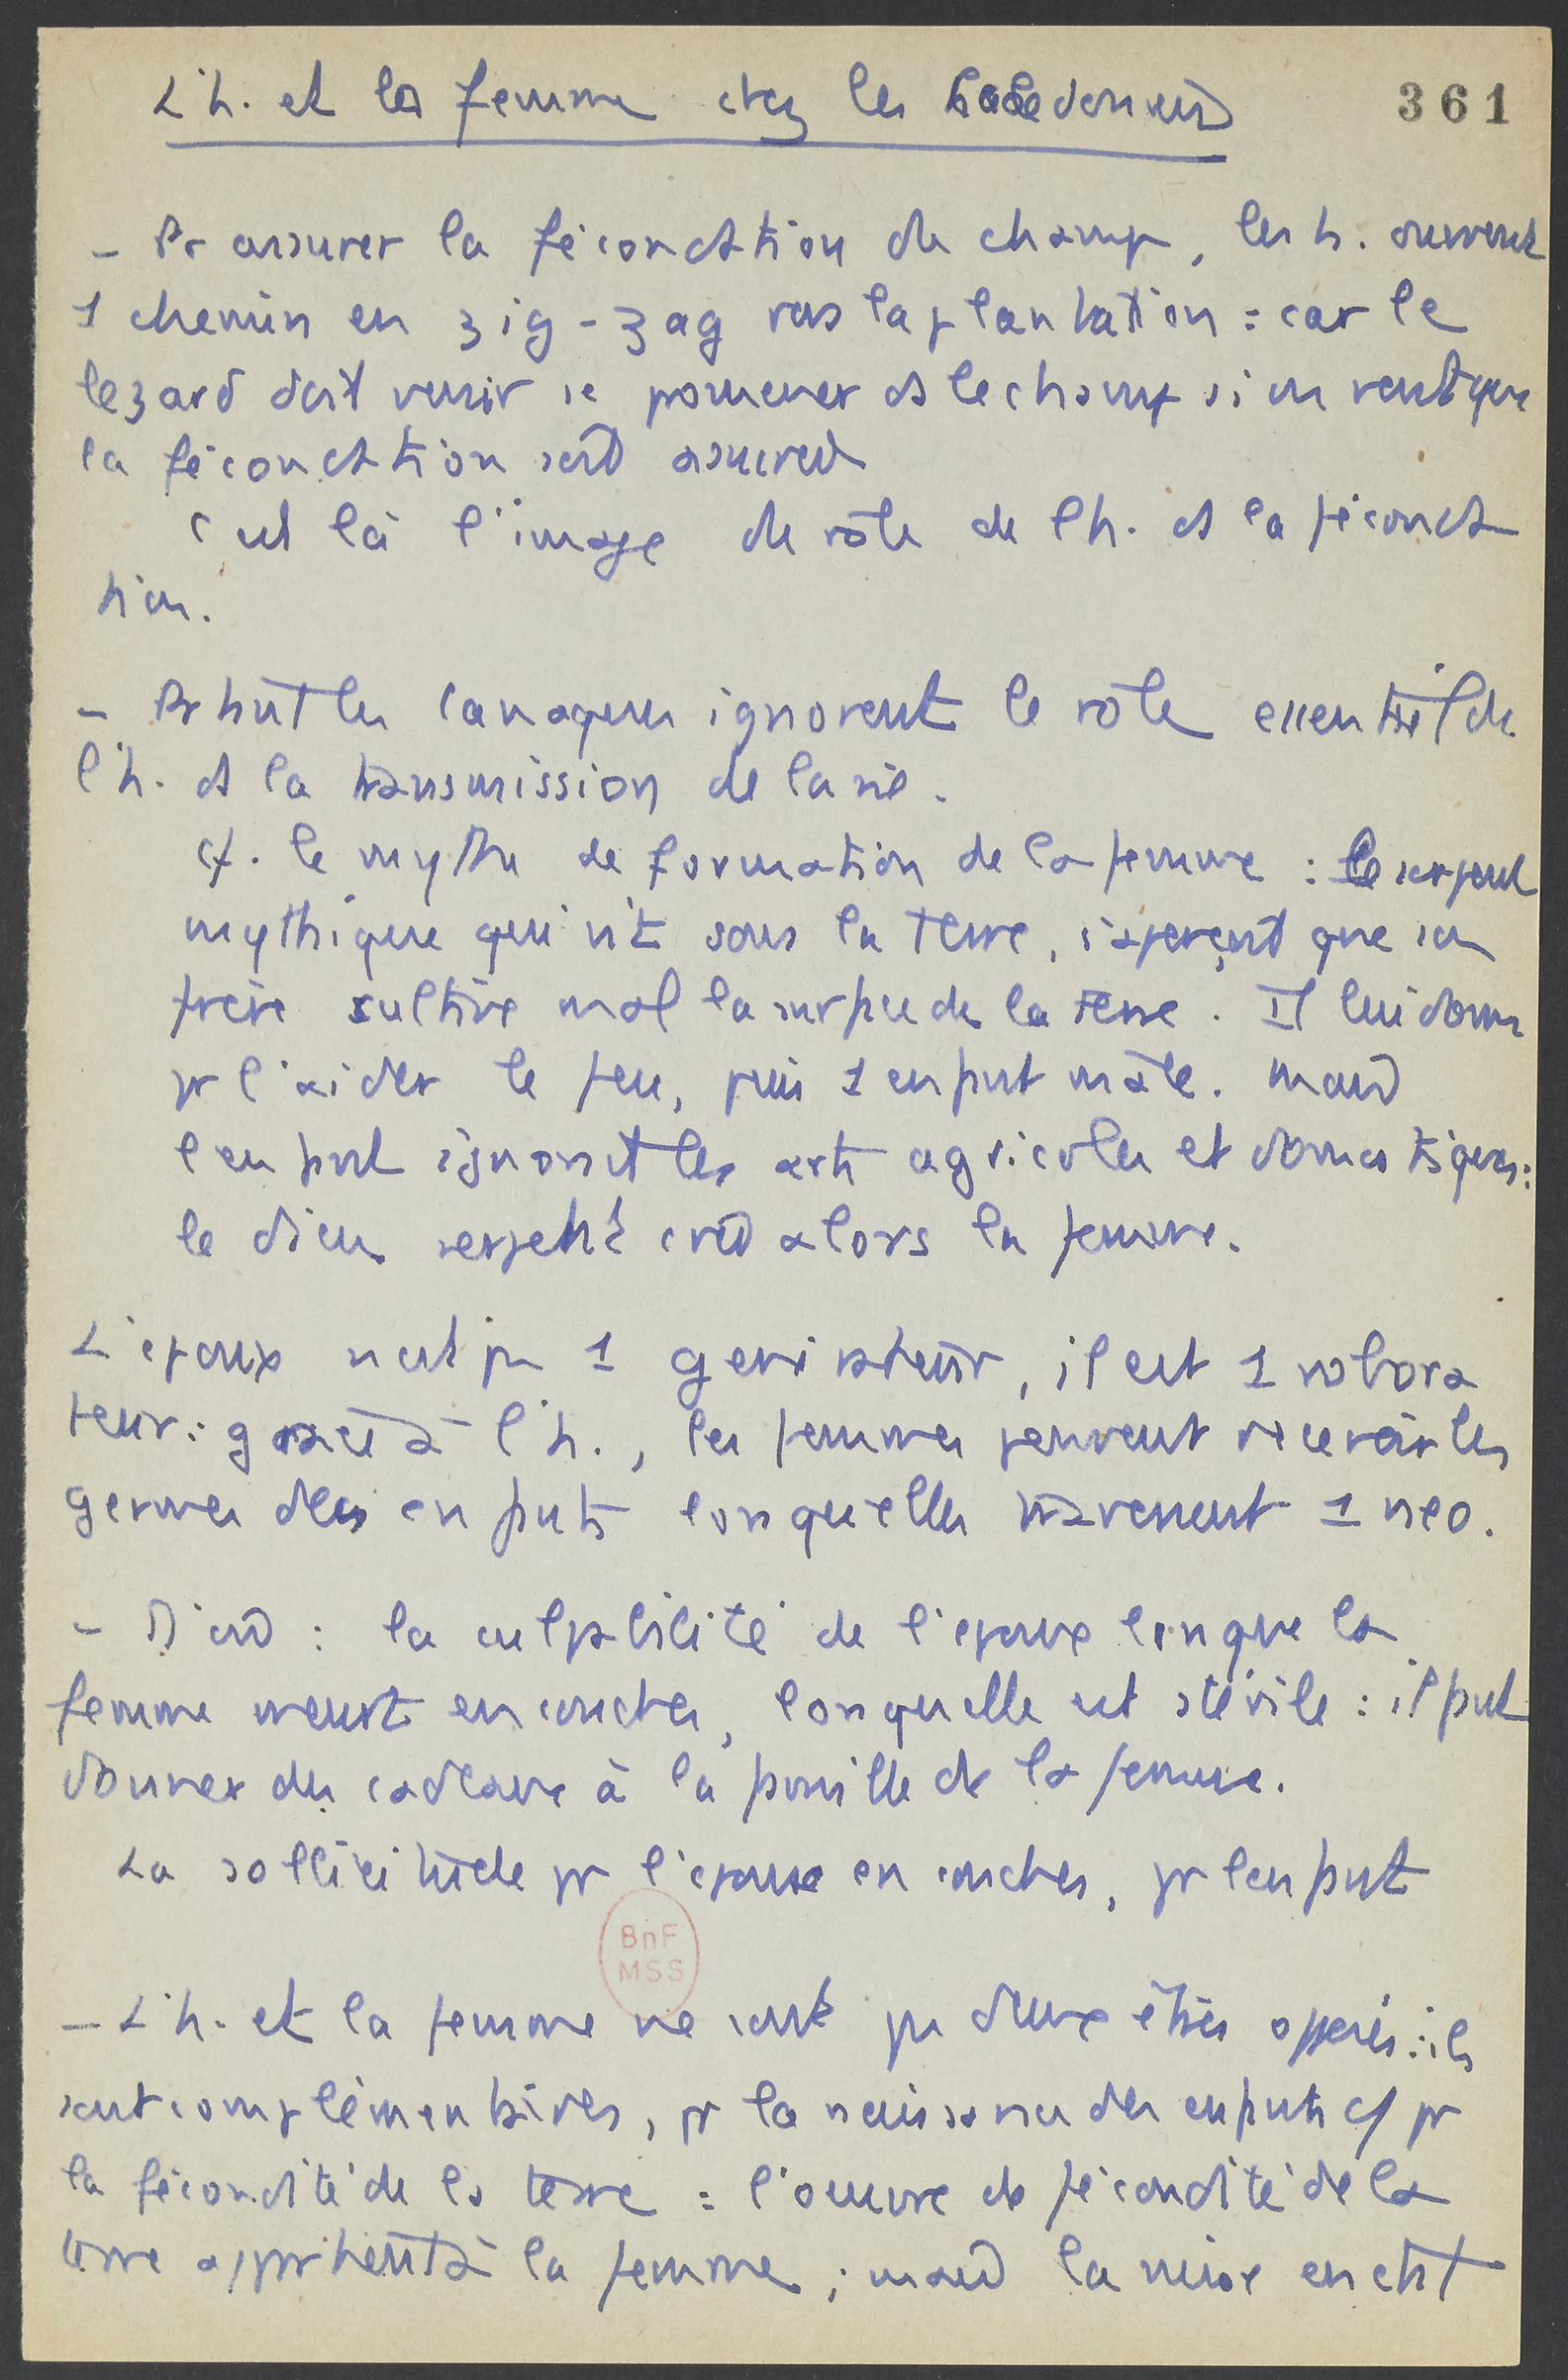 L'h. et la femme chez les Calédoniens
361
- Pr assurer la fécondation du champ, les h. ouvrent
1 chemin en zig-zag vers la plantation : car le
lezard doit venir se promener ds le champ si on veut que
la fécondation soit assurée
C'est là l'image du rôle de l'h. ds la féconda
tion.
- Pourtant les Canaques ignorent le rôle essentiel de
l'h. ds la transmission de la vie.
cf. le mythe de formation de la femme : le serpent
mythique qui vit sous la terre, s'aperçoit que son
frère cultive mal la surface de la terre. Il lui donne
pr l'aider le feu, puis 1 enfant mâle. Mais
l'enfant ignorait les arts agricoles et domestiques :
le dieu serpent créa alors la femme.
L'époux n'est pas 1 generateur, il est 1 robora
teur : grâce à l'h., les femmes peuvent recevoir les
germes des enfants lorsqu'elles traversent 1
- D'où : la culpabilité de l'époux lorsque la
femme meurt en couches, lorsqu'elle est stérile : il faut
donner des cadeaux à la famille de la femme.
La sollicitude pr l'épouse en couches, pr l'enfant
BnF
MSS
- L'h. et la femme ne sont pas deux êtres opposés : ils
sont complémentaires, pr la naissance des enfants cô pr
la fécondité de la terre : l'oeuvre de fécondité de la
terre appartient à la femme ; mais la mise en état